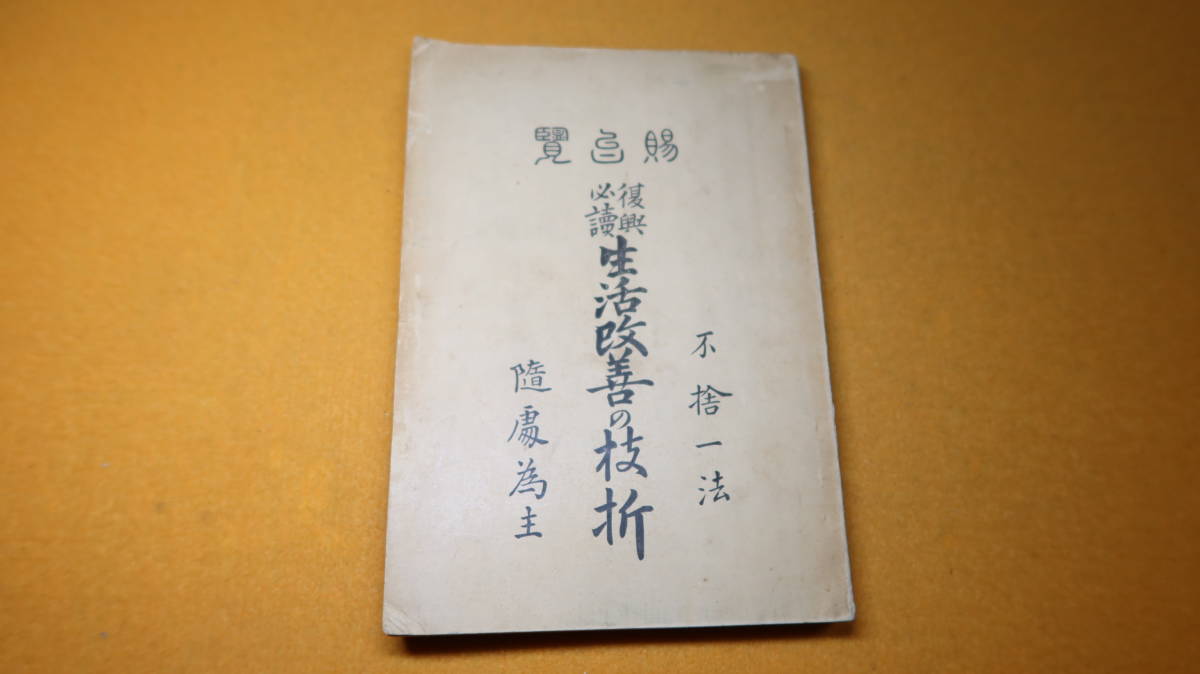 賜台覽
不捨一法
復興
必讀
生活改善の枝折
隨處為主